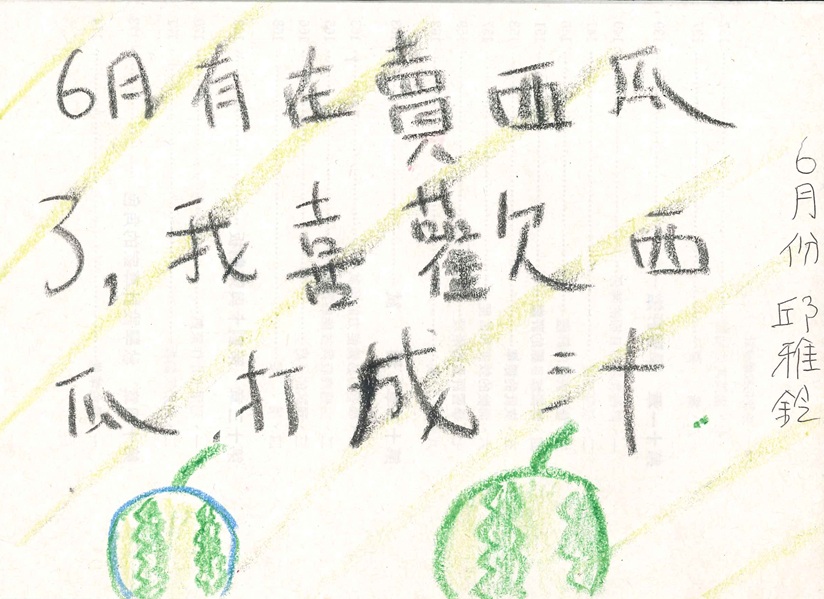 6月有在賣西瓜
了，我喜歡西
瓜打成汁.
6月份 邱雅鈴